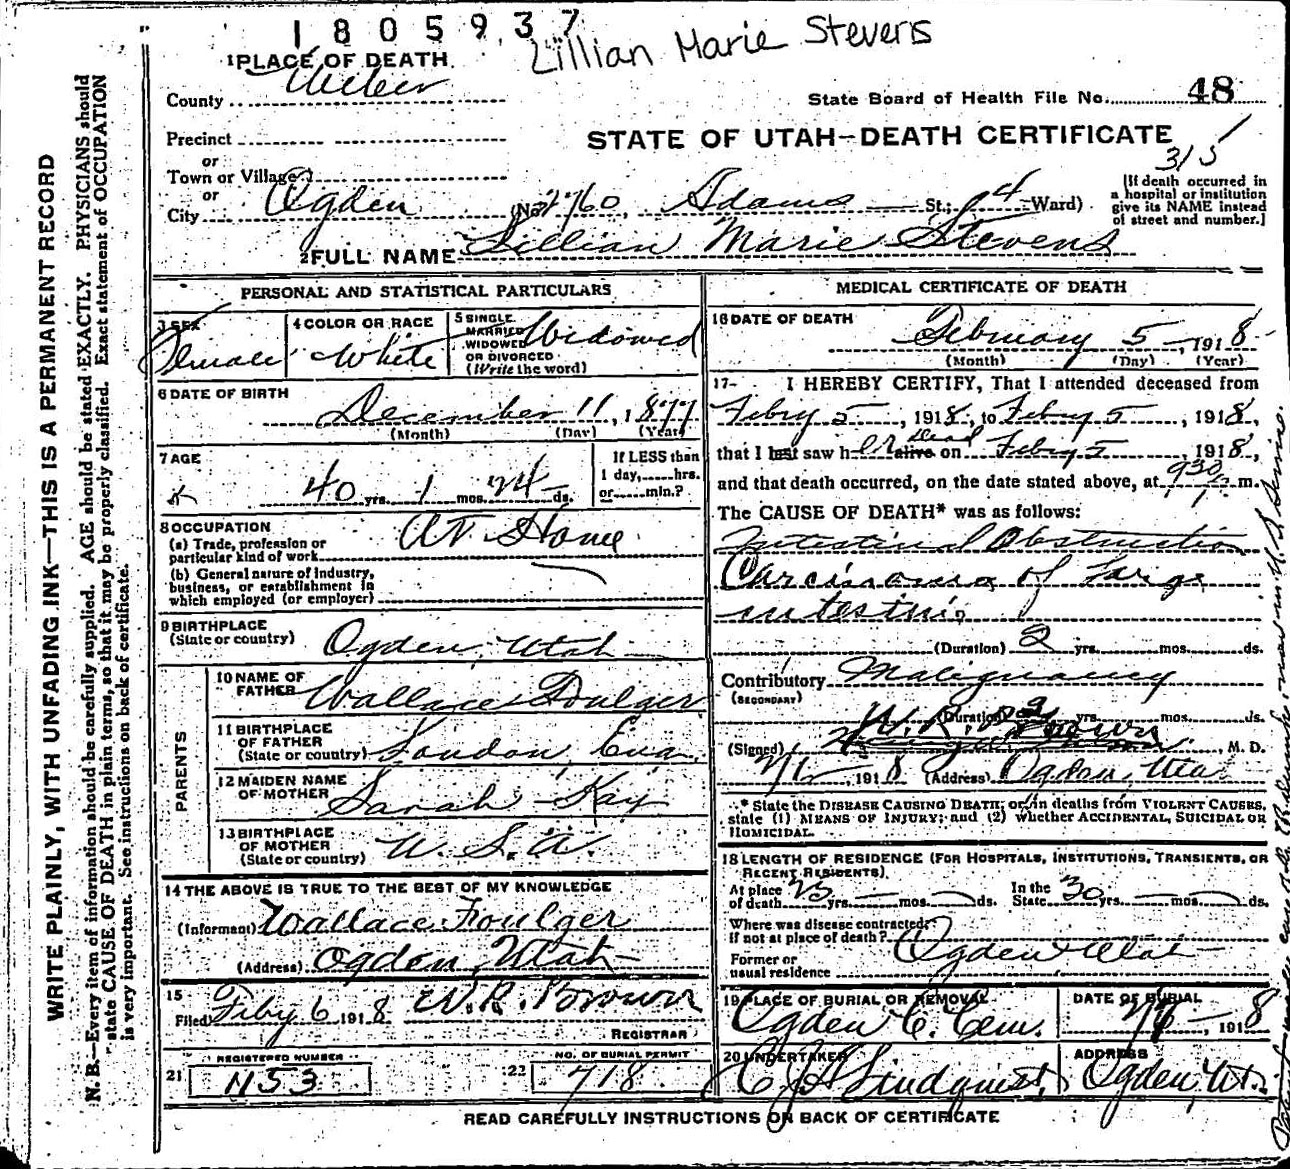 1805937
Lillian Marie Stevens
1 PLACE OF DEATH
County Weber
State Board of Health File No. 48
Precinct
STATE OF UTAH—DEATH CERTIFICATE
or
315
Town or Village
or
City Ogden (No. 2760, Adams St.; 4 Ward)
[If death occurred in
a hospital or institution
give its NAME instead
of street and number.]
2 FULL NAME Lillian Marie Stevens
PERSONAL AND STATISTICAL PARTICULARS
3 SEX Female
4 COLOR OR RACE White
5 SINGLE
MARRIED
WIDOWED
OR DIVORCED
(Write the word)
Widowed
6 DATE OF BIRTH
December 11, 1877
(Month) (Day) (Year)
7 AGE
40 yrs. 1 mos. 24 ds.
If LESS than
1 day,......hrs.
or......min.?
8 OCCUPATION
(a) Trade, profession or
particular kind of work
At Home
(b) General nature of industry,
business, or establishment in
which employed (or employer)
9 BIRTHPLACE
(State or country)
Ogden, Utah
PARENTS
10 NAME OF
FATHER Wallace Foulger
11 BIRTHPLACE
OF FATHER
(State or country) London, Eng.
12 MAIDEN NAME
OF MOTHER Sarah Kay
13 BIRTHPLACE
OF MOTHER
(State or country) U.S.A.
14 THE ABOVE IS TRUE TO THE BEST OF MY KNOWLEDGE
(Informant) Wallace Foulger
(Address) Ogden, Utah
15
Filed Feby 6 1918 W.R. Brown
REGISTRAR
21 REGISTERED NUMBER
1153
22 NO. OF BURIAL PERMIT
718
MEDICAL CERTIFICATE OF DEATH
16 DATE OF DEATH
February 5, 1918
(Month) (Day) (Year)
17- I HEREBY CERTIFY, That I attended deceased from
Febry 5, 1918, to Febry 5, 1918,
that I last saw her alive Dead on Febry 5, 1918,
and that death occurred, on the date stated above, at 930 m.
The CAUSE OF DEATH* was as follows:
Intestinal Obstruction
Carcinoma of Large
intestine
(Duration) 2 yrs. mos. ds.
Contributory Malignancy
(SECONDARY)
(Duration) 2 yrs. mos. ds.
(Signed) W. R. Brown, M. D.
1918 (Address) Ogden, Uta
* State the DISEASE CAUSING DEATH; or, in deaths from VIOLENT CAUSES,
state (1) MEANS OF INJURY; and (2) whether ACCIDENTAL, SUICIDAL OR
HOMICIDAL.
18 LENGTH OF RESIDENCE (FOR HOSPITALS, INSTITUTIONS, TRANSIENTS, OR
RECENT RESIDENTS)
At place
of death 25 yrs. mos. ds.
In the
State 30 yrs. mos. ds.
Where was disease contracted,
if not at place of death? Ogden Utah
Former or
usual residence
19 PLACE OF BURIAL OR REMOVAL
Ogden C. Cem.
DATE OF BURIAL
1918
20 UNDERTAKER
C J A Lindquist
ADDRESS
Ogden, Ut.
READ CAREFULLY INSTRUCTIONS ON BACK OF CERTIFICATE
WRITE PLAINLY, WITH UNFADING INK—THIS IS A PERMANENT RECORD
N. B.—Every item of information should be carefully supplied. AGE should be stated EXACTLY. PHYSICIANS should
state CAUSE OF DEATH in plain terms, so that it may be properly classified. Exact statement of OCCUPATION
is very important. See instructions on back of certificate.